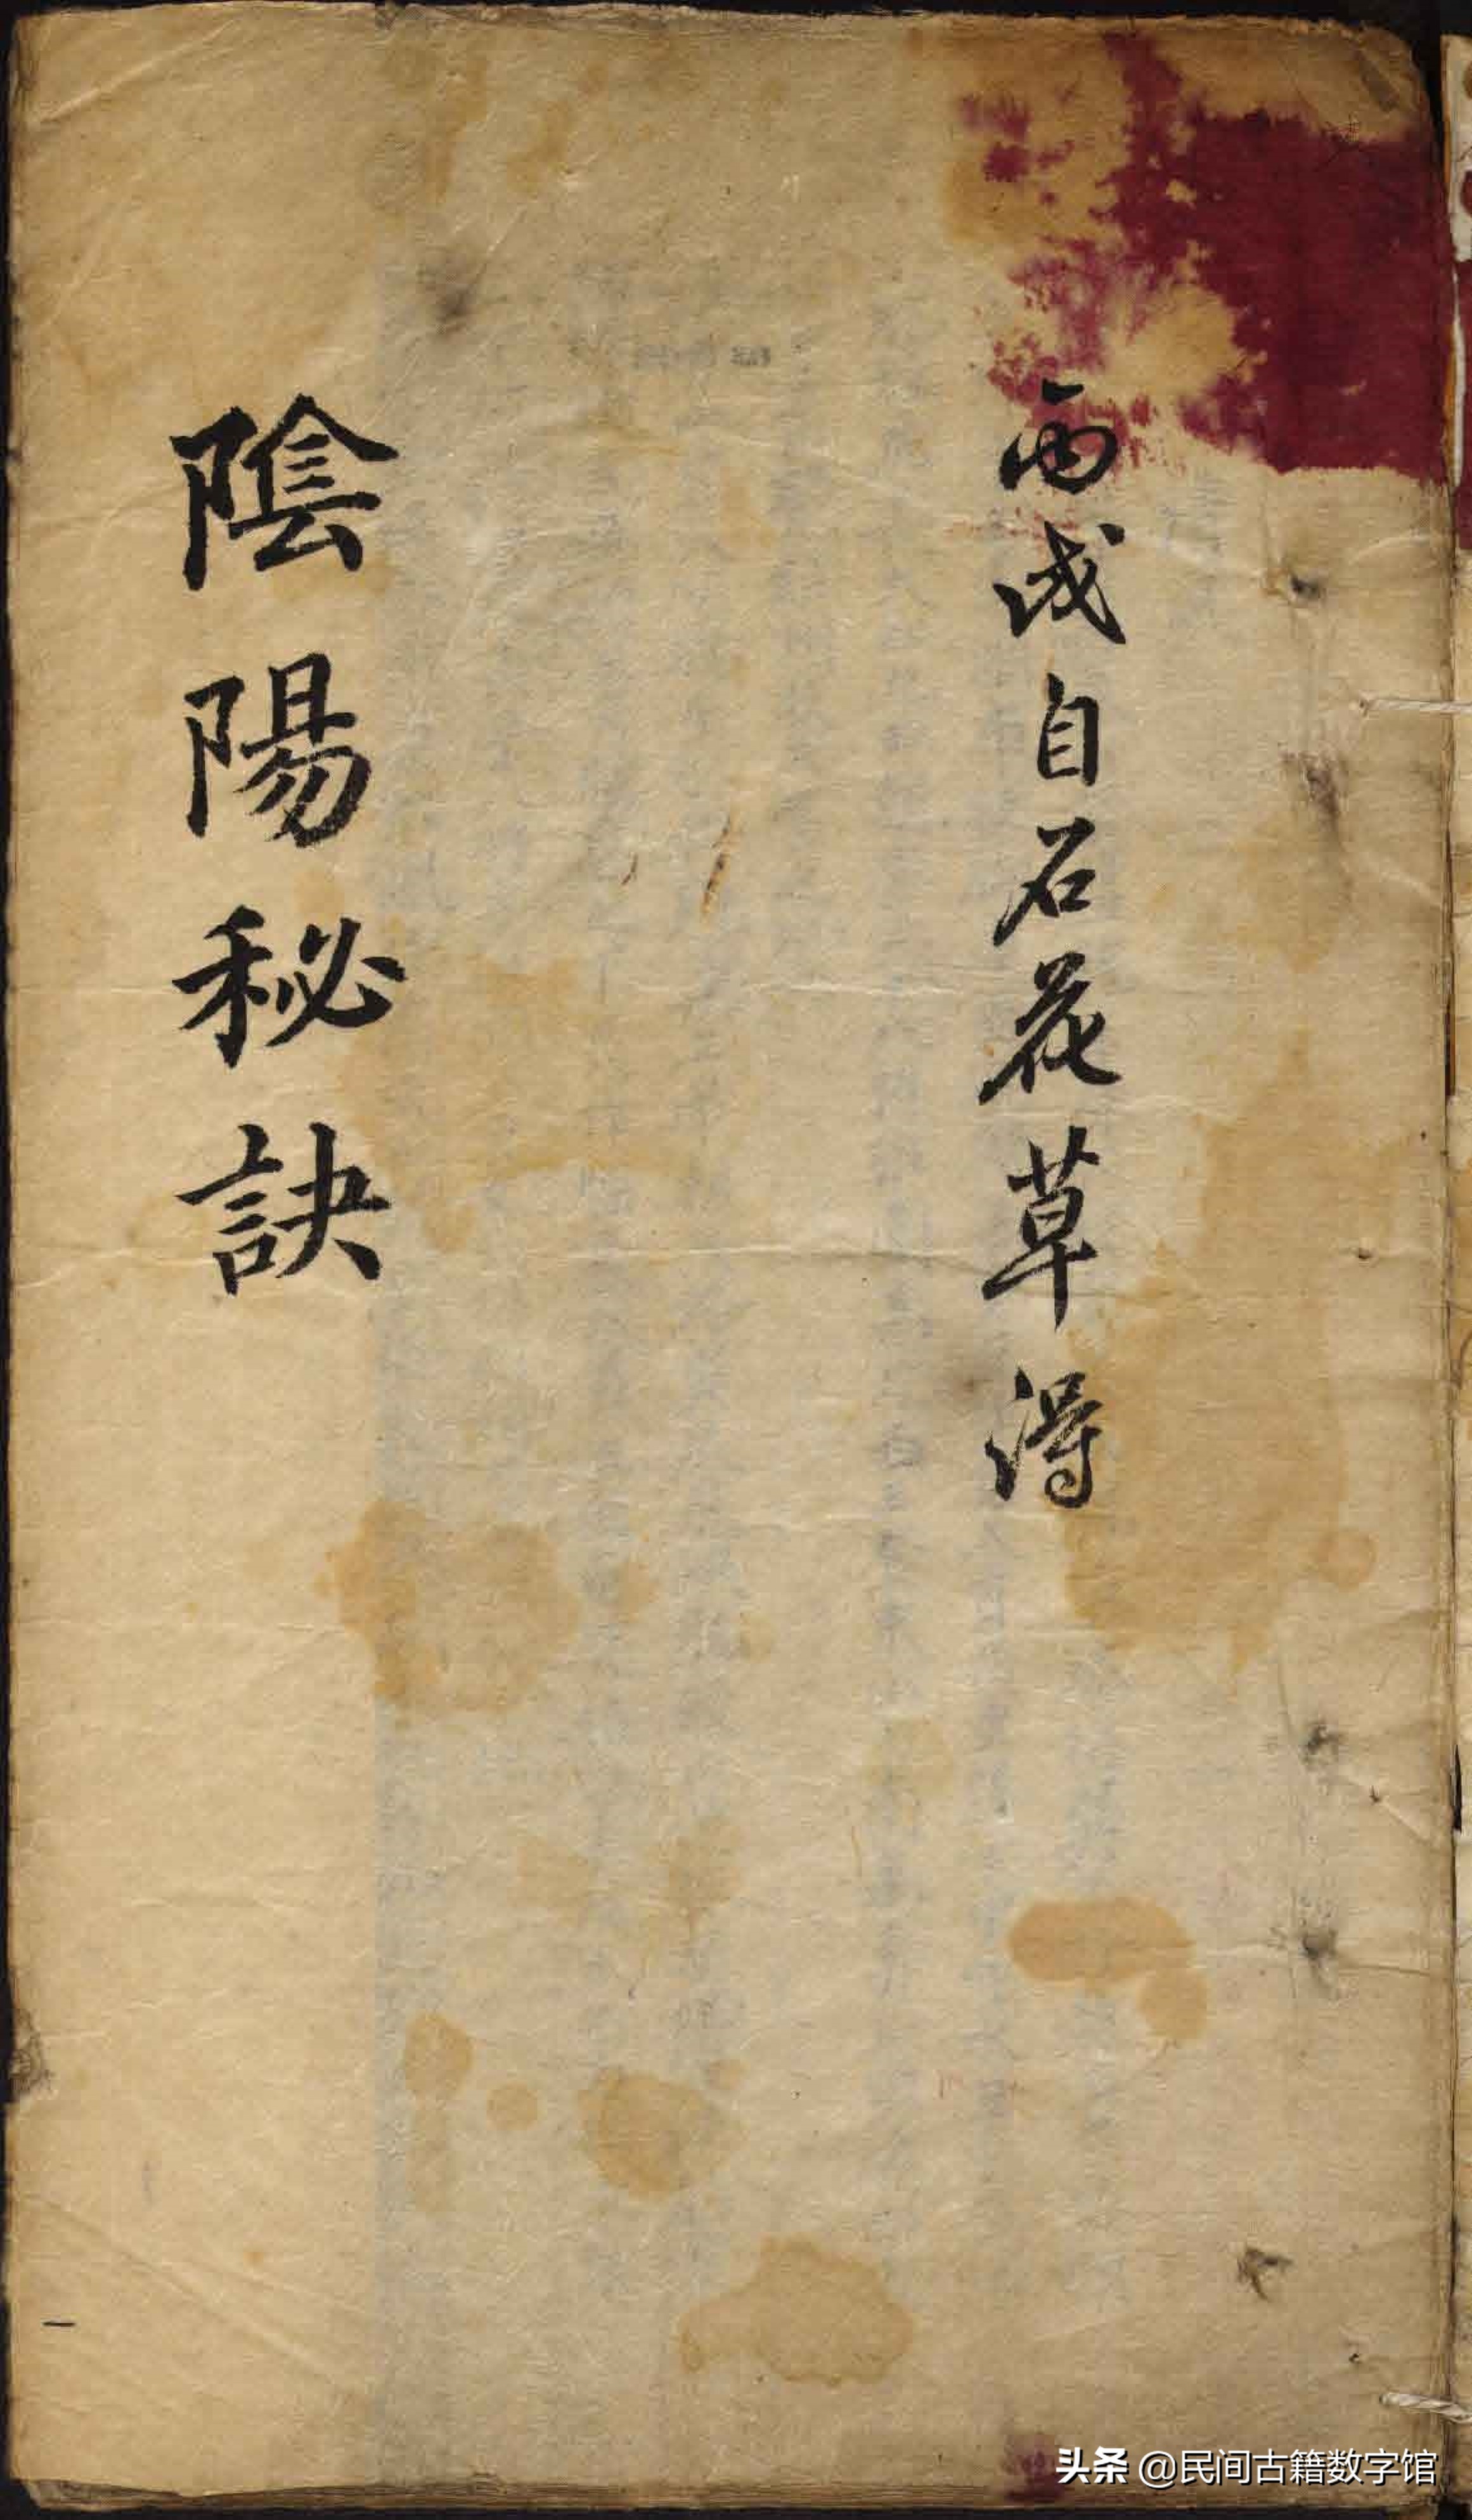 丙戌自石花草得
陰陽秘訣
一
头条 @民间古籍数字馆